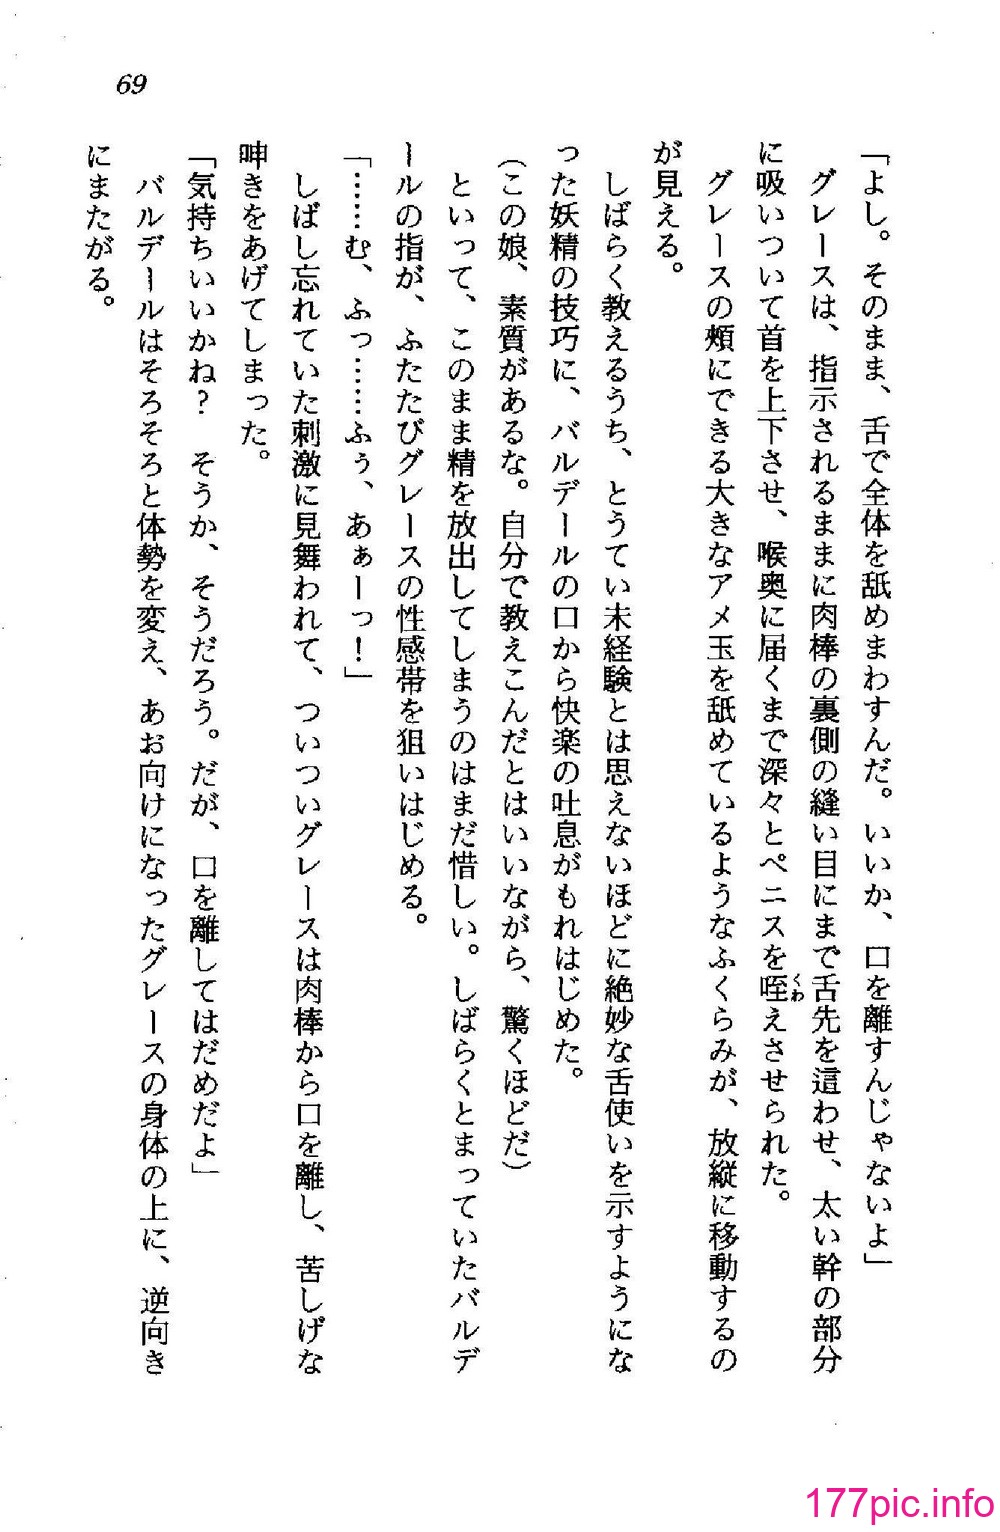 69
「よし。そのまま、舌で全体を舐めまわすんだ。いいか、口を離すんじゃないよ」
グレースは、指示されるままに肉棒の裏側の縫い目にまで舌先を這わせ、太い幹の部分
に吸いついて首を上下させ、喉奥に届くまで深々とペニスを咥えさせられた。
くわ
グレースの頬にできる大きなアメ玉を舐めているようなふくらみが、放縦に移動するの
が見える。
しばらく教えるうち、とうてい未経験とは思えないほどに絶妙な舌使いを示すようにな
った妖精の技巧に、バルデールの口から快楽の吐息がもれはじめた。
(この娘、素質があるな。自分で教えこんだとはいいながら、驚くほどだ)
といって、このまま精を放出してしまうのはまだ惜しい。しばらくとまっていたバルデ
ールの指が、ふたたびグレースの性感帯を狙いはじめる。
「……む、ふっ……ふぅ、あぁーっ！」
しばし忘れていた刺激に見舞われて、ついついグレースは肉棒から口を離し、苦しげな
呻きをあげてしまった。
「気持ちいいかね？　そうか、そうだろう。だが、口を離してはだめだよ」
バルデールはそろそろと体勢を変え、あお向けになったグレースの身体の上に、逆向き
にまたがる。
177pic.info